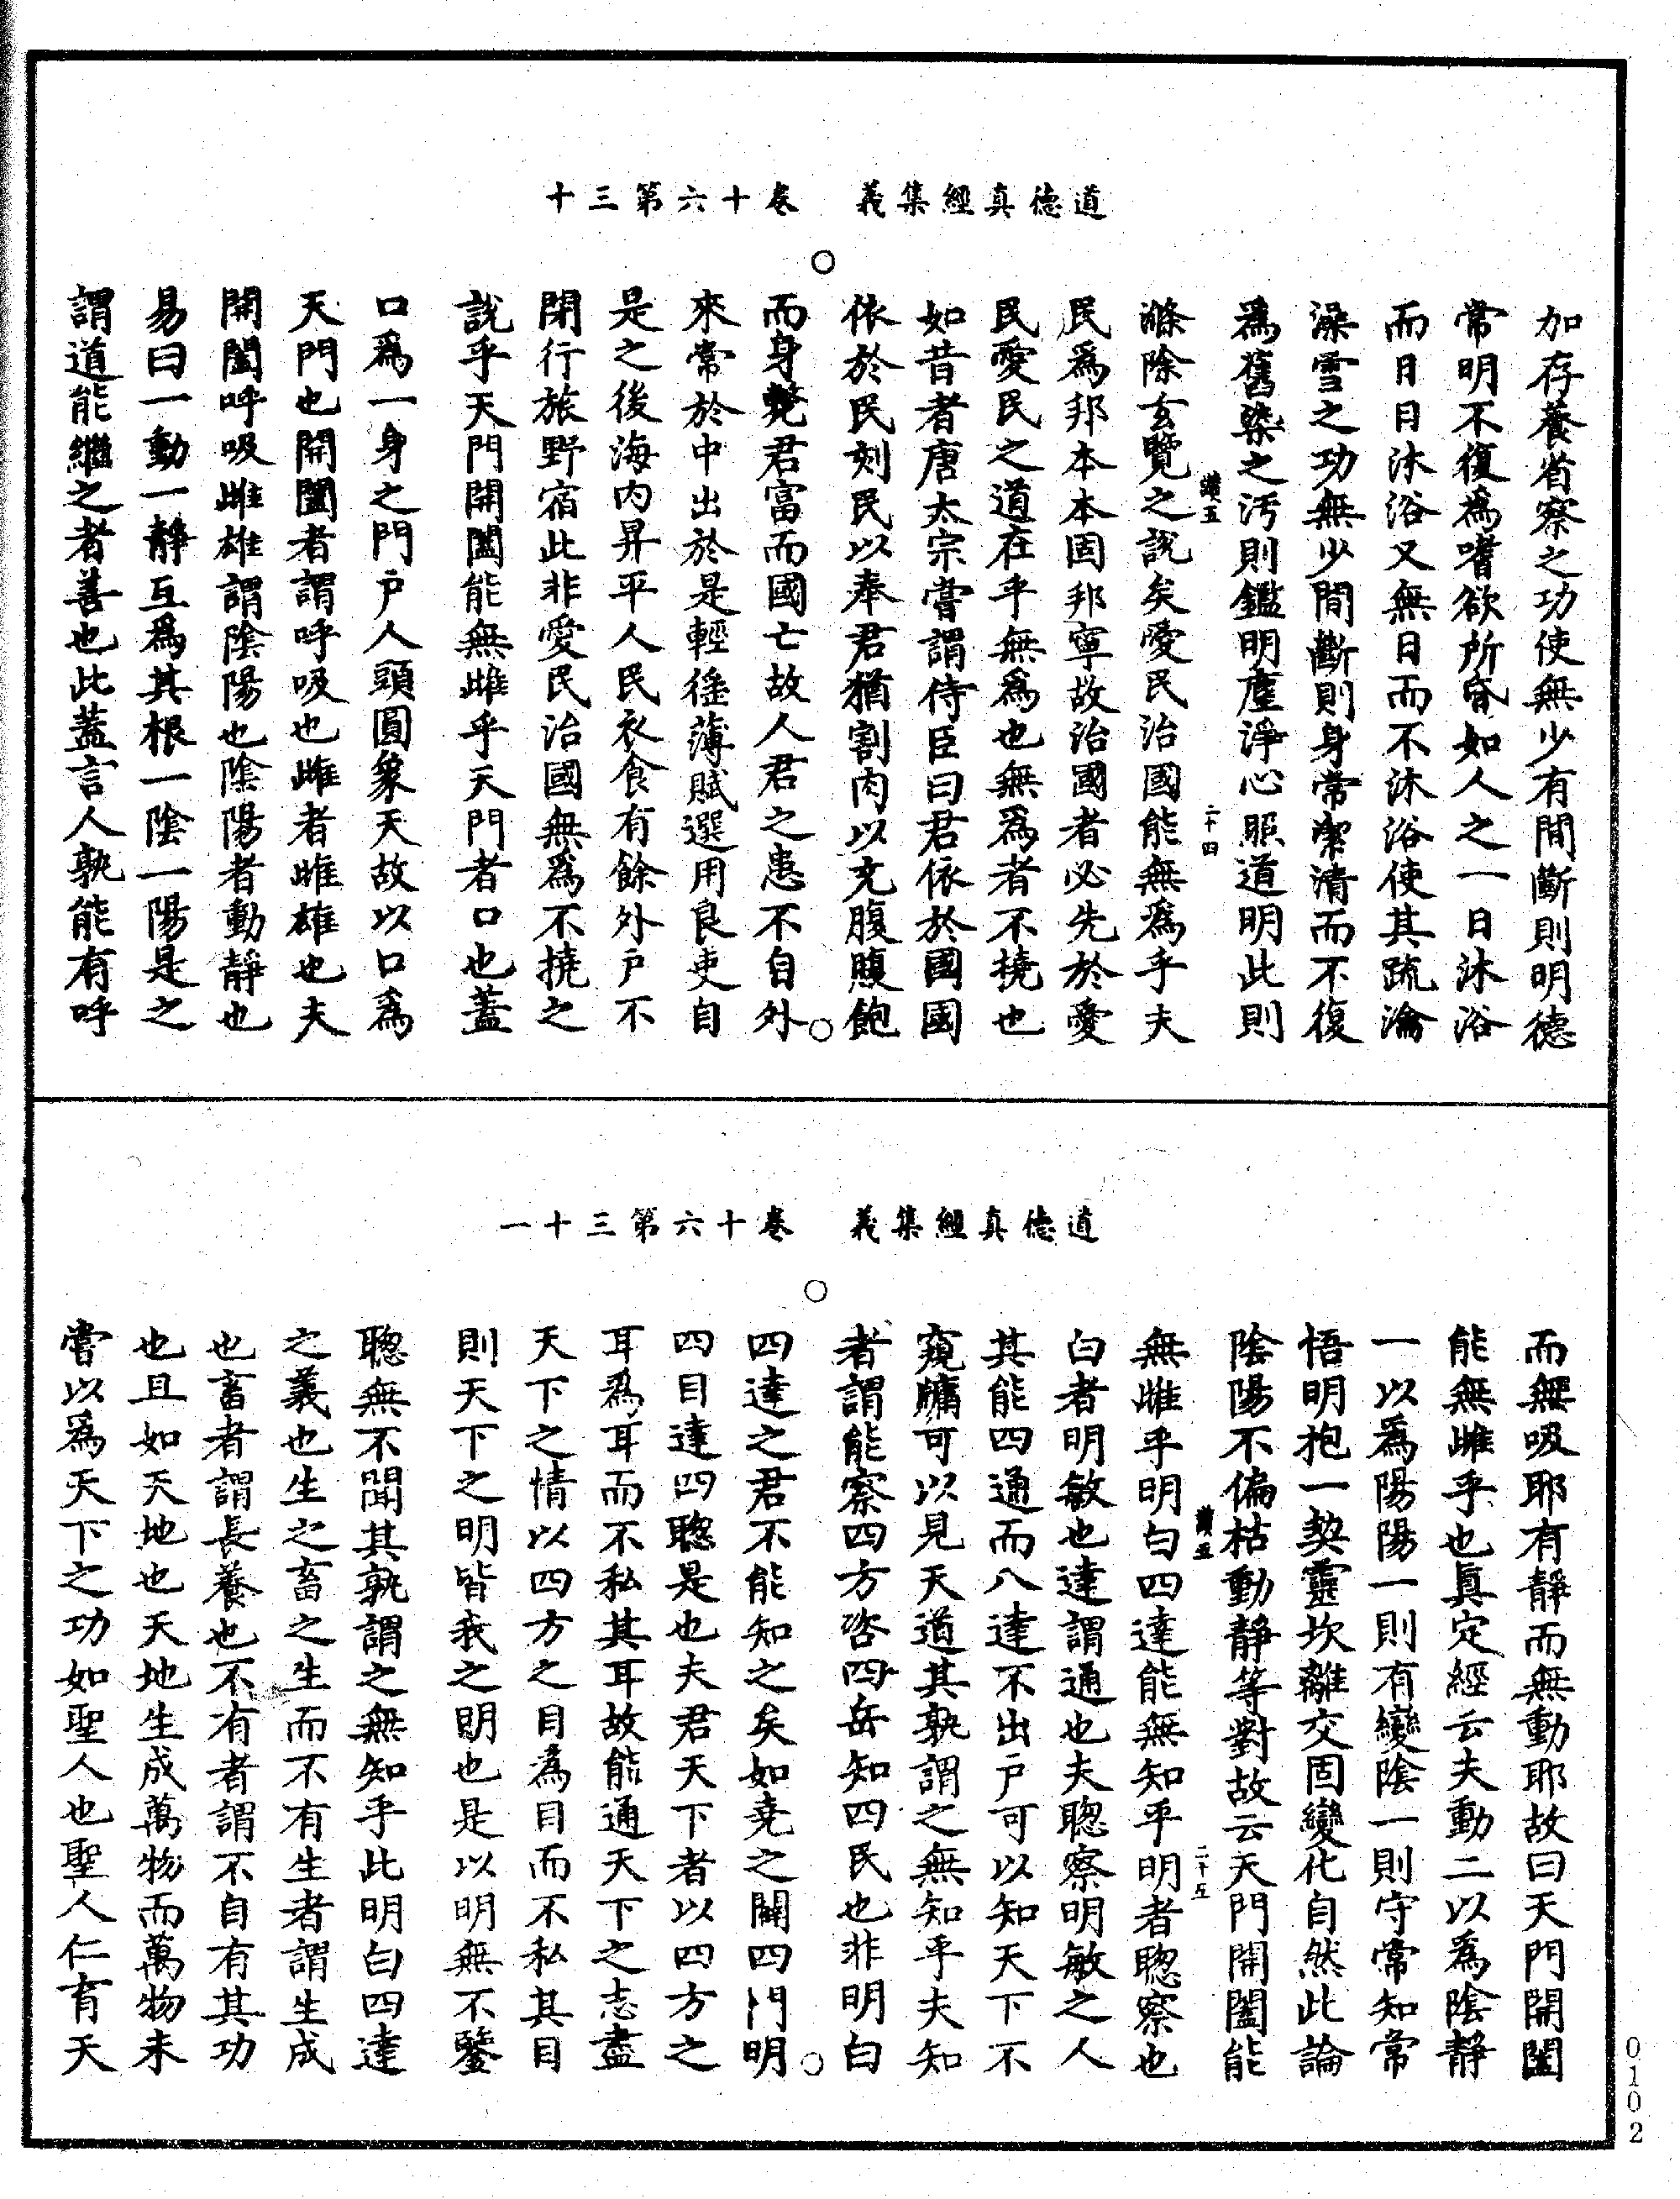 道德真經集義　卷十六第三十
加存養省察之功使無少有間斷則明德
常明不復爲嗜欲所昏如人之一日沐浴
而日日沐浴又無日而不沐浴使其疏瀹
澡雪之功無少間斷則身常潔清而不復
爲舊染之污則鑑明塵淨心照道明此則
讚五　二十四
滌除玄覽之說矣愛民治國能無爲乎夫
民爲邦本本固邦寧故治國者必先於愛
民愛民之道在乎無爲也無爲者不撓也
如昔者唐太宗嘗謂侍臣曰君依於國國
依於民刻民以奉君猶割肉以充腹腹飽
而身斃君富而國亡故人君之患不自外
來常於中出於是輕徭薄賦選用良吏自
是之後海內昇平人民衣食有餘外户不
閉行旅野宿此非愛民治國無爲不撓之
說乎天門開闔能無雌乎天門者口也蓋
口爲一身之門户人頭圓象天故以口爲
天門也開闔者謂呼吸也雌者雌雄也夫
開闔呼吸雌雄謂陰陽也陰陽者動靜也
易曰一動一靜互爲其根一陰一陽是之
謂道能繼之者善也此蓋言人孰能有呼
道德真經集義　卷十六第三十一
而無吸耶有靜而無動耶故曰天門開闔
能無雌乎也眞定經云夫動二以爲陰靜
一以爲陽陽一則有變陰一則守常知常
悟明抱一契靈坎離交固變化自然此論
陰陽不偏枯動靜等對故云天門開闔能
讚五　二十五
無雌乎明白四達能無知乎明者聰察也
白者明敏也達謂通也夫聰察明敏之人
其能四通而八達不出户可以知天下不
窺牖可以見天道其孰謂之無知乎夫知
者謂能察四方咨四岳知四民也非明白
四達之君不能知之矣如堯之闢四門明
四目達四聰是也夫君天下者以四方之
耳爲耳而不私其耳故能通天下之志盡
天下之情以四方之目為目而不私其目
則天下之明皆我之明也是以明無不鑒
聰無不聞其孰謂之無知乎此明白四達
之義也生之畜之生而不有生者謂生成
也畜者謂長養也不有者謂不自有其功
也且如天地也天地生成萬物而萬物未
嘗以爲天下之功如聖人也聖人仁育天
0102